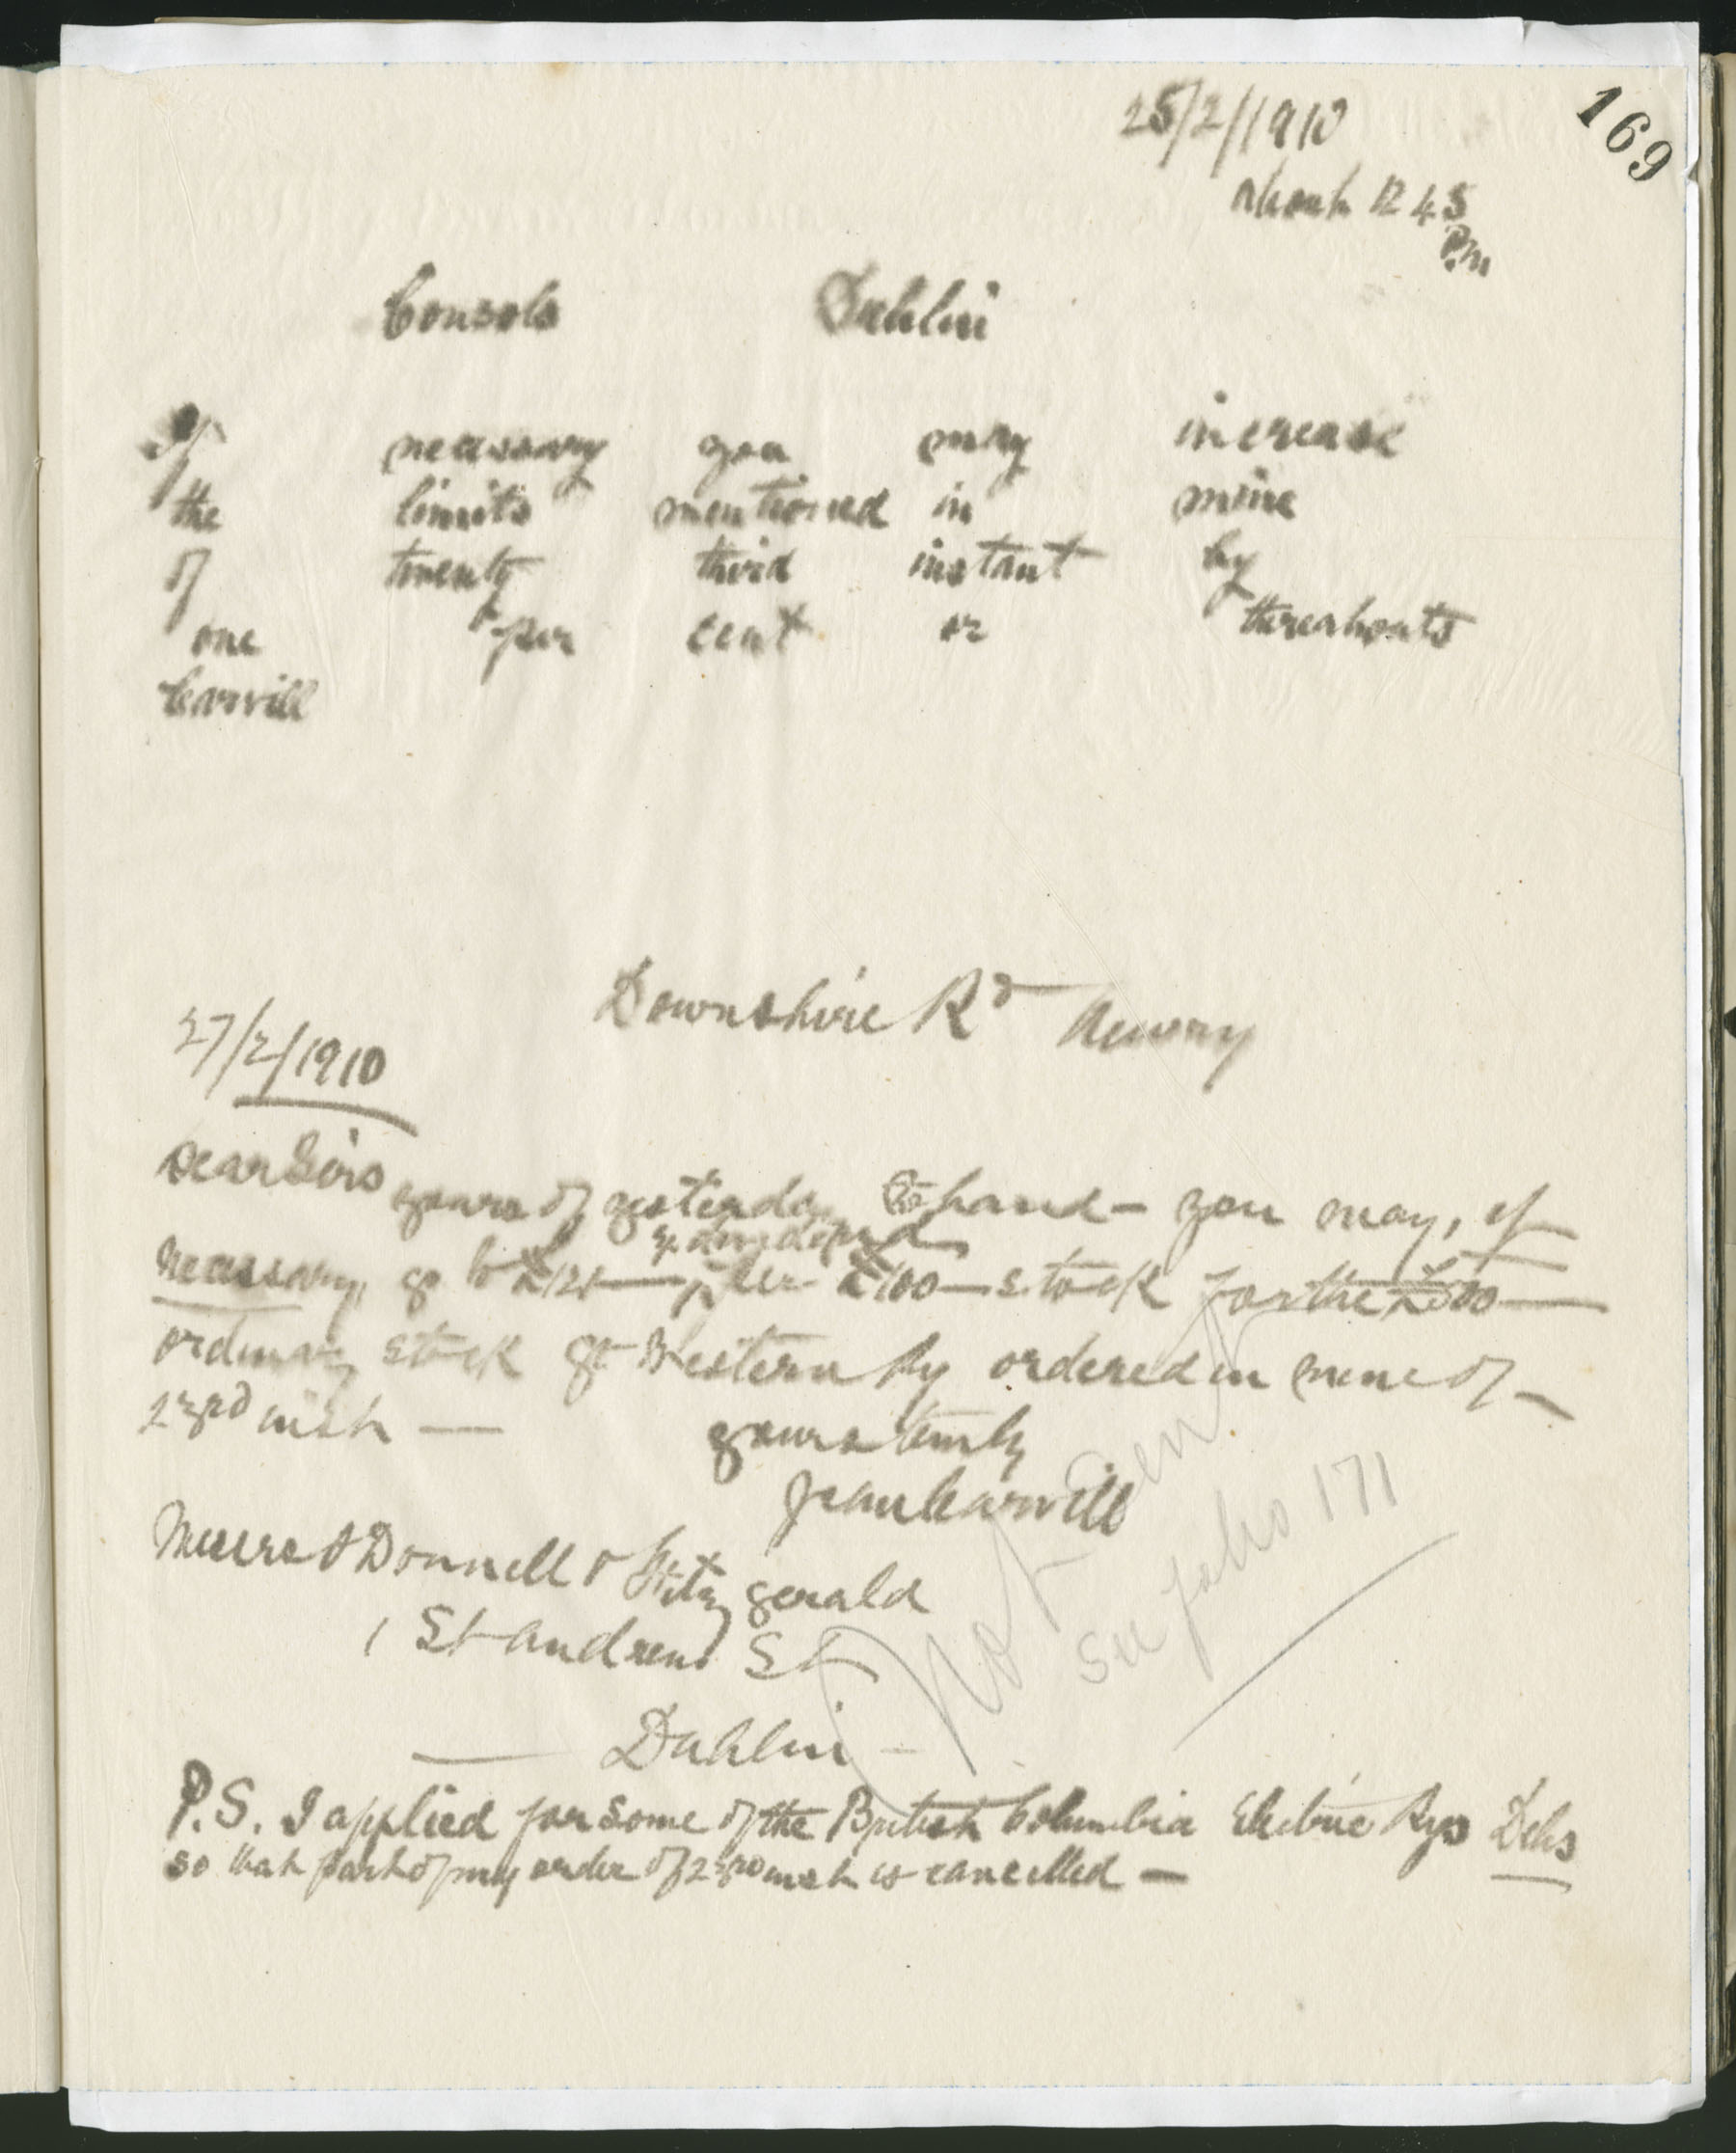 169
25/2/1910
about 12 45
P.m
Consols Dublin
If necessary you may increase
the limits mentioned in mine
of twenty third instant by
one per cent or thereabouts
Carvill
Downshire Rd Newry
27/2/1910
Dear Sirs yours of yesterday to hand - you may, if
necessary, go to £121 — per £100 — stock for the £500 —
ordinary stock Gt Western Ry ordered in mine of —
23rd inst —
yours truly
Carvill
Messrs O'Donnell & Fitzgerald
1 St Andrews St
Dublin -
Not sent
see folio 171
P.S. I applied for some of the British Columbia Electric Rys Debs
so that part of my order of 23rd inst is cancelled —